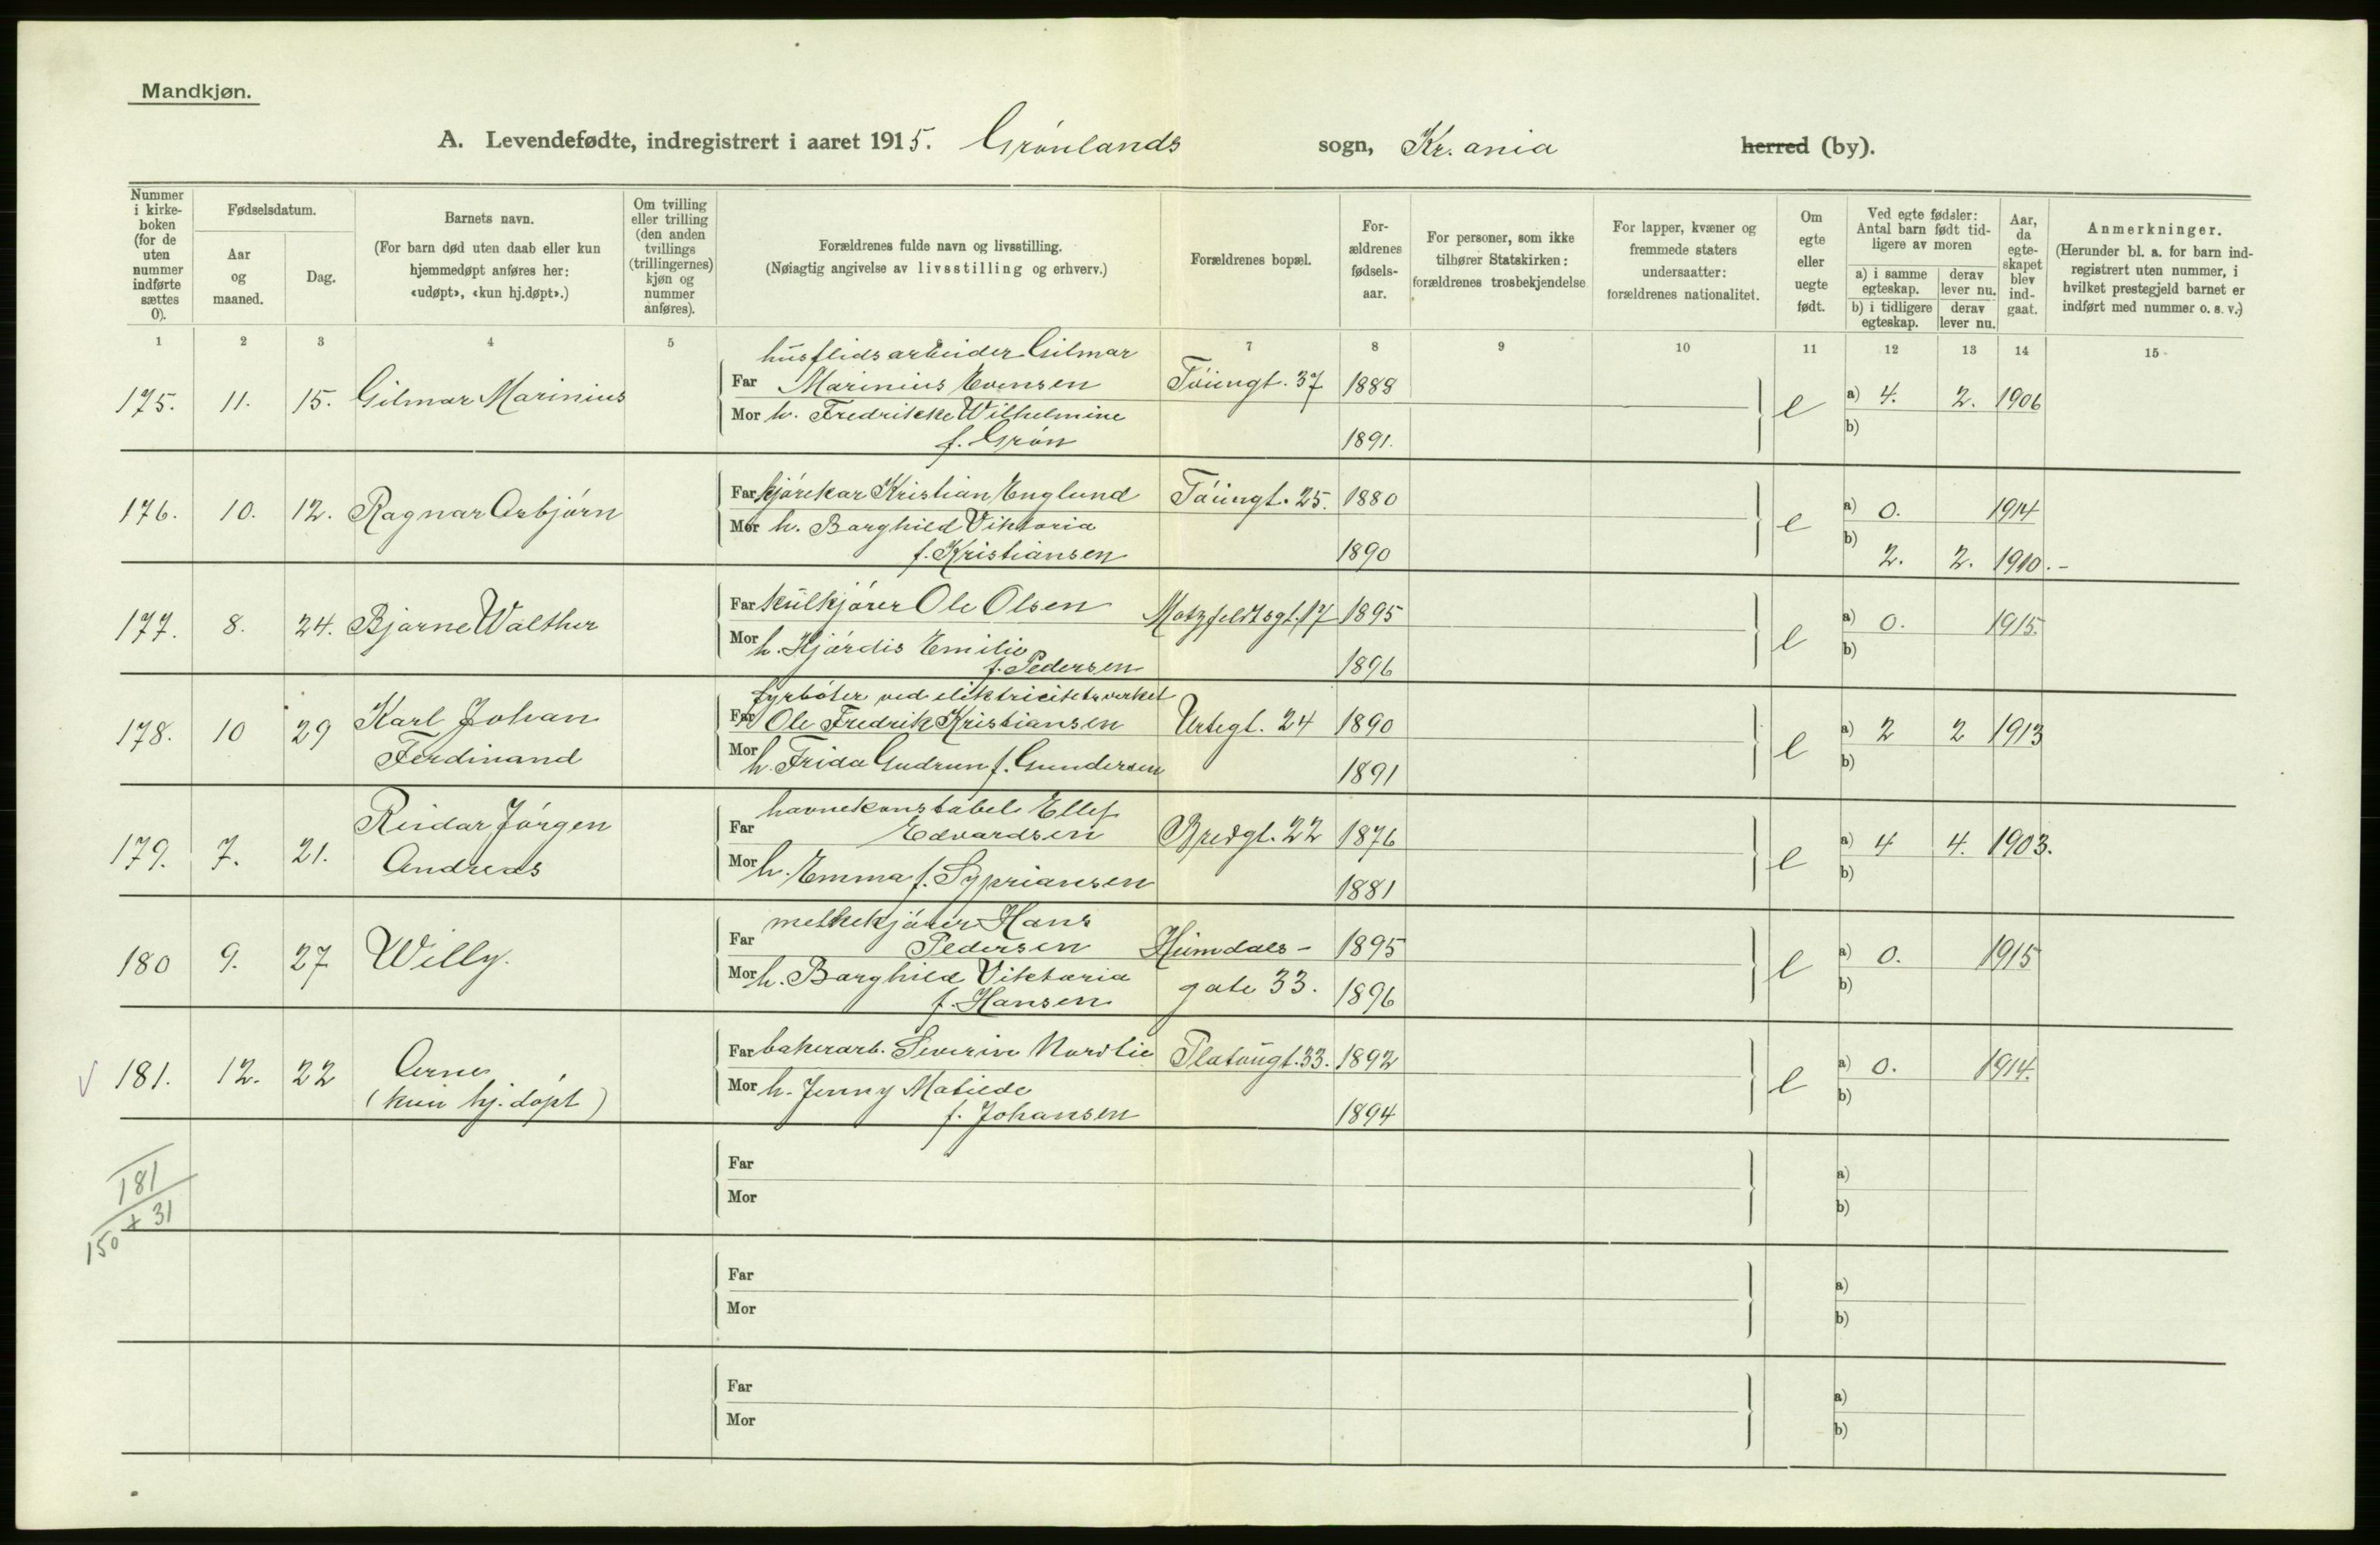 Mandkjøn.
A. Levendefødte, indregistrert i aaret 1915. Grønlands sogn, Kr.ania herred (by).
Nummer i kirke-boken (for de uten nummer indførte sættes 0).
Fødselsdatum.
Aar og maaned.
Dag.
Barnets navn.
(For barn død uten daab eller kun hjemmedøpt anføres her: «udøpt», «kun hj.døpt».)
Om tvilling eller trilling (den anden tvillings (trillingernes) kjøn og nummer anføres).
Forældrenes fulde navn og livsstilling.
(Nøiagtig angivelse av livsstilling og erhverv.)
Forældrenes bopæl.
For-ældrenes fødsels-aar.
For personer, som ikke tilhører Statskirken: forældrenes trosbekjendelse
For lapper, kvæner og fremmede staters undersaatter: forældrenes nationalitet.
Om egte eller uegte født.
Ved egte fødsler: Antal barn født tid-ligere av moren
a) i samme egteskap.
derav lever nu.
b) i tidligere egteskap.
derav lever nu.
Aar, da egte-skapet blev ind-gaat.
Anmerkninger.
(Herunder bl. a. for barn ind-registrert uten nummer, i hvilket prestegjeld barnet er indført med nummer o. s. v.)
1 2 3 4 5 7 8 9 10 11 12 13 14 15
husflidsarbeider Gilmar
175. 11. 15. Gilmar Marinius Far Marinius Evensen Tøiengt. 37 1888 e a) 4. 2. 1906
Mor h. Fredrikke Wilhelmine
f. Grøn 1891. b)
176. 10. 12. Ragnar Asbjørn Far kjørekar Kristian Englund Tøiengt. 25. 1880 e a) 0. 1914
Mor h. Borghild Viktoria
f. Kristiansen 1890 b) 2. 2. 1910.-
177. 8. 24. Bjarne Walther Far kulkjører Ole Olsen Motzfeldtsgt. 17 1895 e a) 0. 1915.
Mor h. Hjørdis Emilie
f. Pedersen 1896 b)
fyrbøter ved elektricitetsverket
178. 10 29 Karl Johan Ferdinand Far Ole Fredrik Kristiansen Urtegt. 24 1890 e a) 2 2 1913
Mor h. Frida Gudrun f. Gundersen 1891 b)
havnekonstabel Ellef
179. 7. 21. Reidar Jørgen Andreas Far Edvardsen Bredgt. 22 1876 e a) 4 4. 1903.
Mor h. Emma f. Sypriansen 1881 b)
melkekjører Hans
180 9. 27 Willy. Far Pedersen Heimdals- 1895 e a) 0. 1915
Mor h. Borghild Viktoria gate 33.
f. Hansen 1896 b)
181. 12. 22 Arne Far bakerarb. Severin Nordlie Platougt. 33. 1892 e a) 0. 1914.
(kun hj. døpt) Mor h. Jenny Matilde
f. Johansen 1894 b)
181
+ 31
150
Far a)
Mor b)
Far a)
Mor b)
Far a)
Mor b)